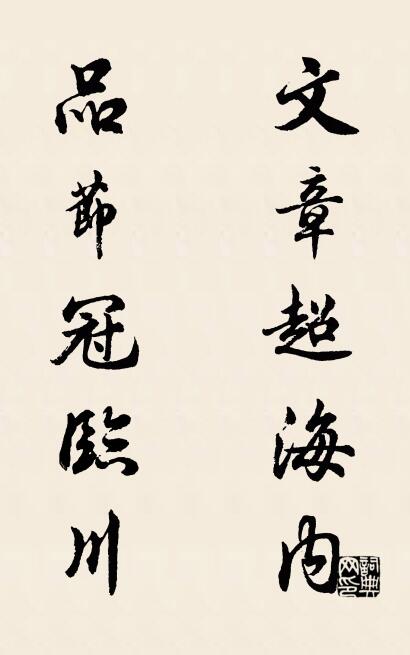 文章超海内
品節冠臨川
詞典網印